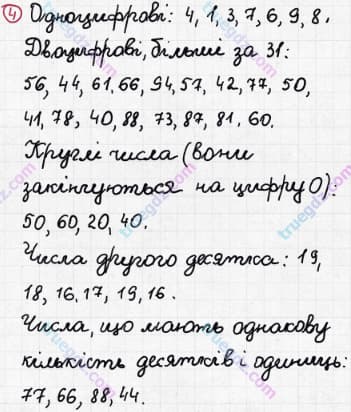 ④ Одноцифрові: 4, 1, 3, 7, 6, 9, 8.
Двоцифрові, більші за 31:
56, 44, 61, 66, 94, 57, 42, 77, 50,
41, 78, 40, 88, 73, 87, 81, 60.
Круглі числа (вони
закінчуються на цифру 0):
50, 60, 20, 40.
Числа другого десятка: 19,
18, 16, 17, 19, 16.
Числа, що мають однакову
кількість десятків і одиниць:
77, 66, 88, 44.